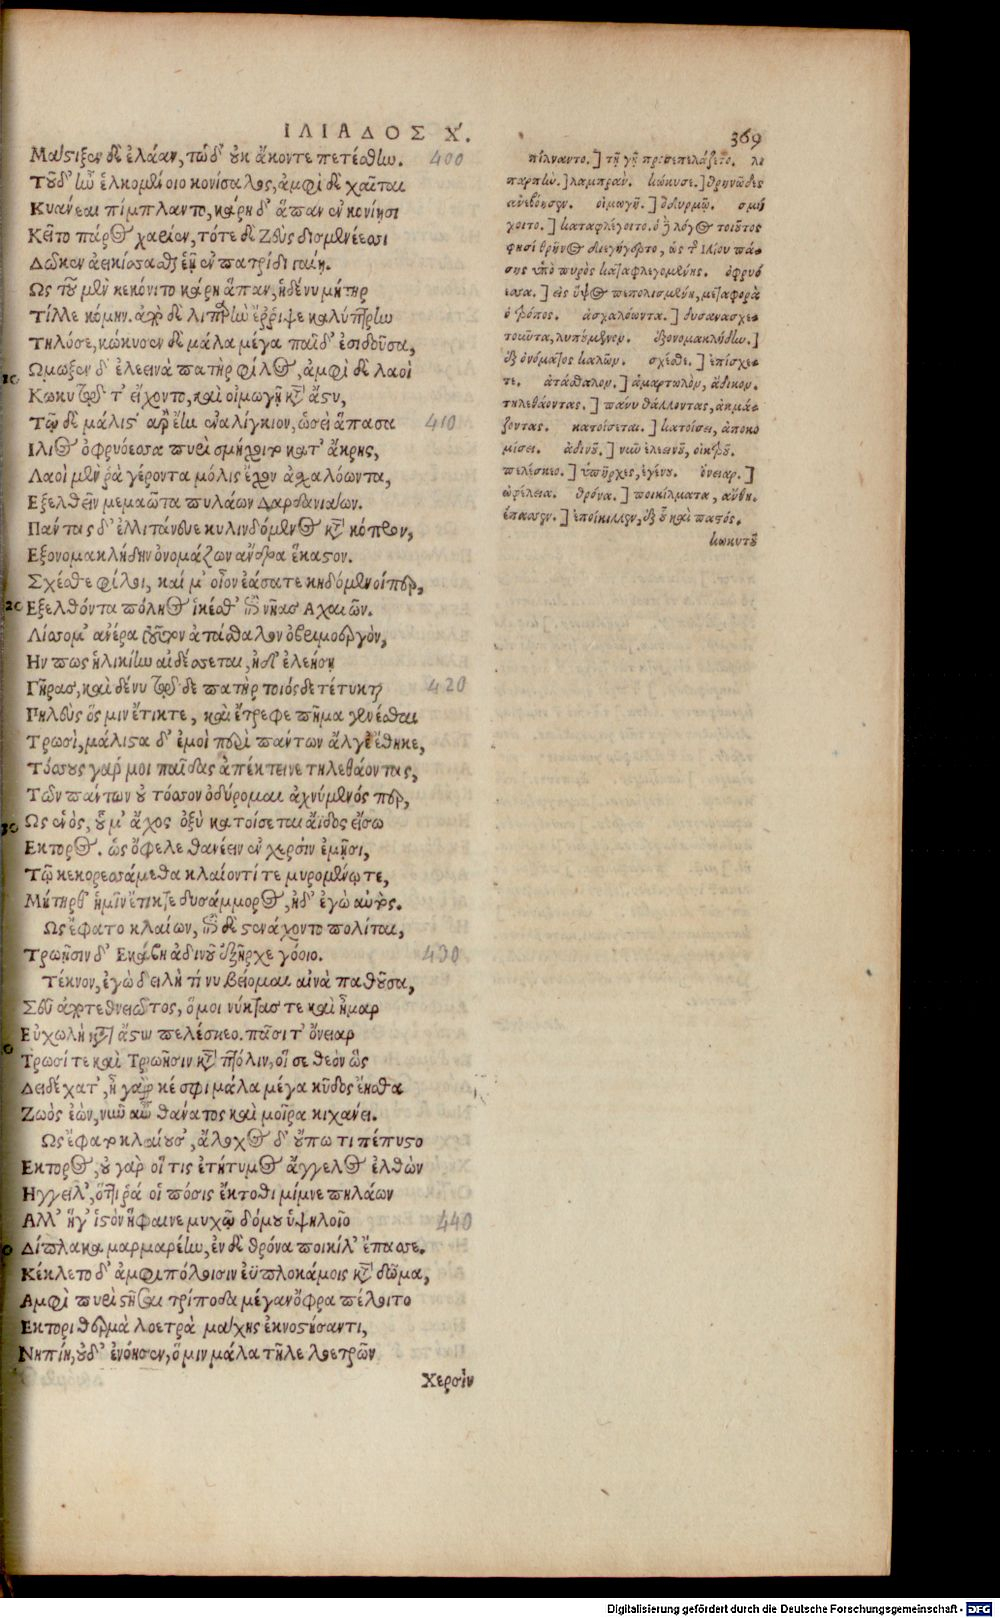 ΙΛΙΑΔΟΣ Χ.
369
Μάςιξεν δὲ ἐλάαν, τὼ δ' οὐκ ἄκοντε πετέσθην. 400
Τοῦ δ' ἦν ἑλκομένοιο κονίσαλος, ἀμφὶ δὲ χαῖται
Κυάνεαι πίμπλαντο, κάρη δ' ἅπαν ἐν κονίῃσι
Κεῖτο πάρος χαρίεν, τότε δὲ Ζεὺς δυσμενέεσσι
Δῶκεν ἀεικίσσασθαι ἑῇ ἐν πατρίδι γαίῃ.
Ως τοῦ μὲν κεκόνιτο κάρη ἅπαν, ἡ δέ νυ μήτηρ
Τίλλε κόμην. ἀπὸ δὲ λιπαρὴν ἔρριψε καλύπτρην
Τηλόσε, κώκυσεν δὲ μάλα μέγα παῖδ' ἐσιδοῦσα,
10 Ωμωξεν δ' ἐλεεινὰ πατὴρ φίλος, ἀμφὶ δὲ λαοὶ
Κωκυτῷ τ' εἴχοντο, καὶ οἰμωγῇ κατὰ ἄςυ,
Τῷ δὲ μάλις' ἄρ' ἔην ἐναλίγκιον, ὡσεὶ ἅπασα 410
Ιλιος ὀφρυόεσσα πυρὶ σμήχοιτο κατ' ἄκρης,
Λαοὶ μέν ῥα γέροντα μόλις ἔχον ἀσχαλόωντα,
Εξελθεῖν μεμαῶτα πυλάων Δαρδανιάων.
Πάντας δ' ἐλλιτάνευε κυλινδόμενος κατὰ κόπρον,
Εξονομακλήδην ὀνομάζων ἄνδρα ἕκαςον.
Σχέσθε φίλοι, καί μ' οἶον ἐάσατε κηδόμενοί περ,
20 Εξελθόντα πόληος ἱκέσθ' ἐπὶ νῆας Αχαιῶν.
Λίσσομ' ἀνέρα τοῦτον ἀτάσθαλον ὀβριμοεργὸν,
Ην πως ἡλικίην αἰδέσσεται, ἠδ' ἐλεήσῃ
Γῆρας, καὶ δέ νυ τῷ δε πατὴρ τοιόσδε τέτυκται 420
Πηλεὺς ὅς μιν ἔτικτε, καὶ ἔτρεφε πῆμα γενέσθαι
Τρωσὶ, μάλιςα δ' ἐμοὶ περὶ πάντων ἄλγε' ἔθηκε,
Τόσσους γάρ μοι παῖδας ἀπέκτεινε τηλεθάοντας,
Τῶν πάντων οὐ τόσσον ὀδύρομαι ἀχνύμενός περ,
30 Ως ἑνὸς, οὗ μ' ἄχος ὀξὺ κατοίσεται ἄϊδος εἴσω
Εκτορος. ὡς ὄφελε θανέειν ἐν χερσὶν ἐμῇσι,
Τῷ κε κορεσσάμεθα κλαίοντέ τε μυρομένω τε,
Μήτηρ θ' ἡμὶν ἔτικτε δυσάμμορος, ἠδ' ἐγὼ αὐτός.
Ως ἔφατο κλαίων, ἐπὶ δὲ ςενάχοντο πολῖται,
Τρωῇσιν δ' Εκάβη ἀδινοῦ ἐξῆρχε γόοιο. 430
Τέκνον, ἐγὼ δειλὴ τί νυ βείομαι αἰνὰ παθοῦσα,
Σεῦ ἀποτεθνειῶτος, ὅ μοι νύκτας τε καὶ ἦμαρ
Εὐχωλὴ κατὰ ἄςυ πελέσκεο. πᾶσί τ' ὄνειαρ
Τρωσί τε καὶ Τρωῇσιν κατὰ πτόλιν, οἵ σε θεὸν ὣς
Δειδέχατ', ἦ γάρ κέ σφι μάλα μέγα κῦδος ἔησθα
Ζωὸς ἐὼν, νῦν αὖ θάνατος καὶ μοῖρα κιχάνει.
Ως ἔφατο κλαίουσ', ἄλοχος δ' οὔπω τι πέπυςο
Εκτορος, οὐ γάρ οἵ τις ἐτήτυμος ἄγγελος ἐλθὼν
Ηγγειλ', ὅττι ῥά οἱ πόσις ἔκτοθι μίμνε πηλάων
Αλλ' ἥγ' ἱςὸν ἥφαινε μυχῷ δόμου ὑψηλοῖο 440
Δίπλακα μαρμαρέην, ἐν δὲ θρόνα ποικίλ' ἔπασσε.
Κέκλετο δ' ἀμφιπόλοισιν ἐϋπλοκάμοις κατὰ δῶμα,
Αμφὶ πυρὶ ςῆσαι τρίποδα μέγαν ὄφρα πέλοιτο
Εκτορι θερμὰ λοετρὰ μάχης ἐκνοςήσαντι,
Νηπίη, οὐδ' ἐνόησεν, ὅ μιν μάλα τῆλε λοετρῶν
Χερσὶν
πίλναντο.] τῇ γῇ προσεπελάζετο. λι
παρὴν.] λαμπρὰν. κώκυσε.] θρηνῶδες
ἀνεβόησεν. οἰμωγῇ.] ὀδυρμῷ. σμή
χοιτο.] καταφλέγοιτο. ὁ λόγος τοιοῦτος
φησὶ θρῆνος διεγήγερτο, ὡς τῆς Ιλίου πά-
σης ὑπὸ πυρὸς καταφλεγομένης. ὀφρυό
εσσα.] εἰς ὕψος πεπολισμένη, μεταφορὰ
ὁ τρόπος. ἀσχαλόωντα.] δυσανασχε-
τοῦντα, λυπούμενον. ἐξονομακλήδην.]
ἐξ ὀνόματος καλῶν. σχέσθε.] ἐπίσχε-
τε. ἀτάσθαλον.] ἁμαρτωλὸν, ἄδικον.
τηλεθάοντας.] πάνυ θάλλοντας, ἀκμά-
ζοντας. κατοίσεται.] κατοίσει, ἀποκο
μίσει. ἀδινοῦ.] νῦν ἐλεεινοῦ, οἰκτροῦ.
πελέσκεο.] ὑπῆρχες, ἐγένου. ὄνειαρ.]
ὠφέλεια. θρόνα.] ποικίλματα, ἄνθη.
ἔπασσεν.] ἐποίκιλλεν, ἐξ οὗ καὶ παςός.
κωκυτοῦ
Digitalisierung gefördert durch die Deutsche Forschungsgemeinschaft - DFG